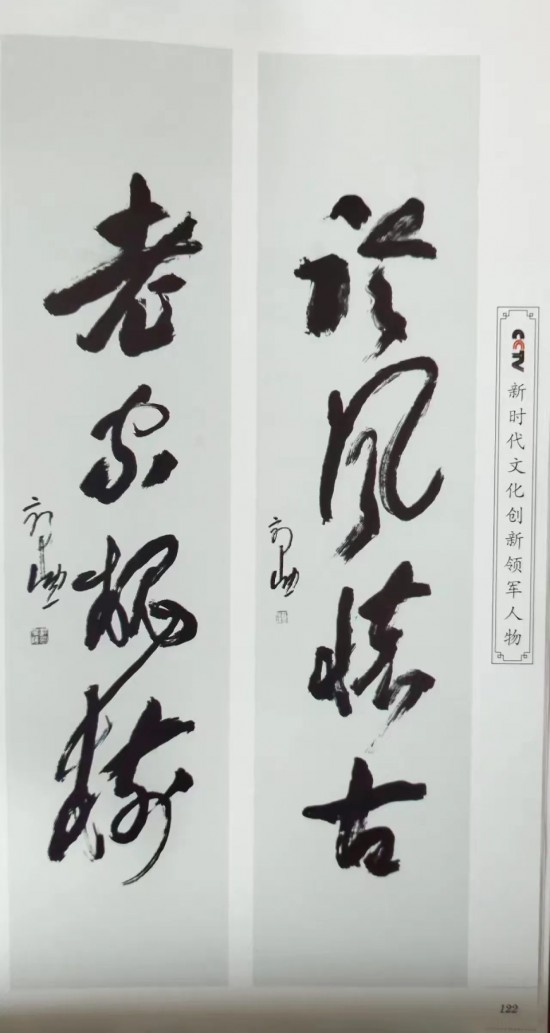 CCTV 新时代文化创新领军人物
临风怀古
老家槐树
122